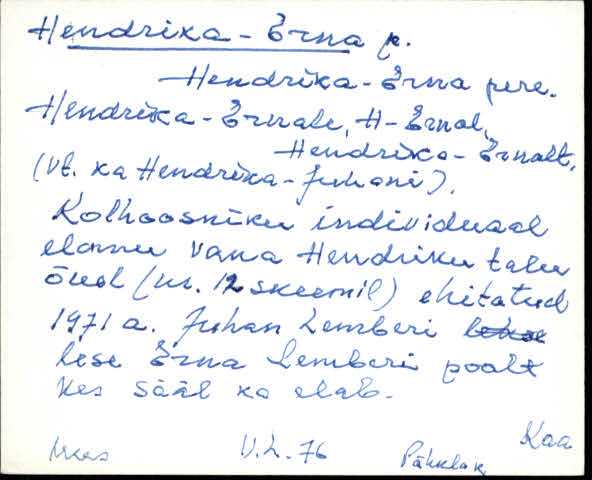 Hendrika-Erna p.
Hendrika-Erna pere.
Hendrika-Ernale, H-Ernal,
Hendrika-Ernalt.
(vt. ka Hendrika-Juhani).
Kolhoosniku individuaal
elamu vana Hendriku talu
õuel (nr. 12 skeemil) ehitatud
1971 a. Juhan Lemberi
lese Erna Lemberi poolt
kes sääl ka elab.
Kaa
V.L. 76
Pähklak